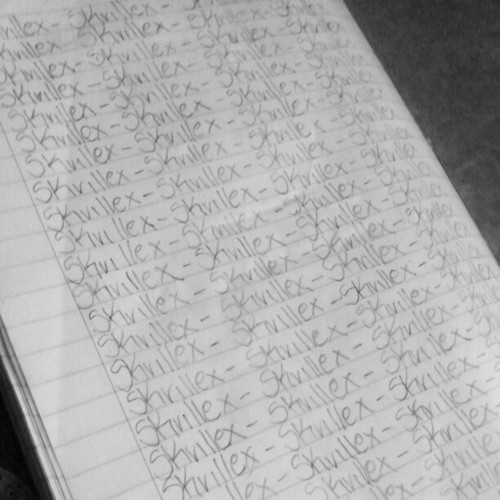 Skrillex - Skrillex -
Skrillex - Skrillex - Skrillex
Skrillex - Skrillex - Skrillex - Skrillex
Skrillex - Skrillex - Skrillex - Skrillex
Skrillex - Skrillex - Skrillex - Skrillex
Skrillex - Skrillex - Skrillex - Skrillex
Skrillex - Skrillex - Skrillex - Skrillex
Skrillex - Skrillex - Skrillex - Skrillex
Skrillex - Skrillex - Skrillex - Skrillex
Skrillex - Skrillex - Skrillex - Skrillex
Skrillex - Skrillex - Skrillex - Skrillex
Skrillex - Skrillex - Skrillex - Skrillex
Skrillex - Skrillex - Skrillex - Skrillex
Skrillex - Skrillex - Skrillex - Skrillex
Skrillex - Skrillex - Skrillex
Skrillex - Skrillex - Skrillex
Skrillex - Skrillex - Skrillex
Skrillex - Skrillex - Skrillex
Skrillex - Skrillex